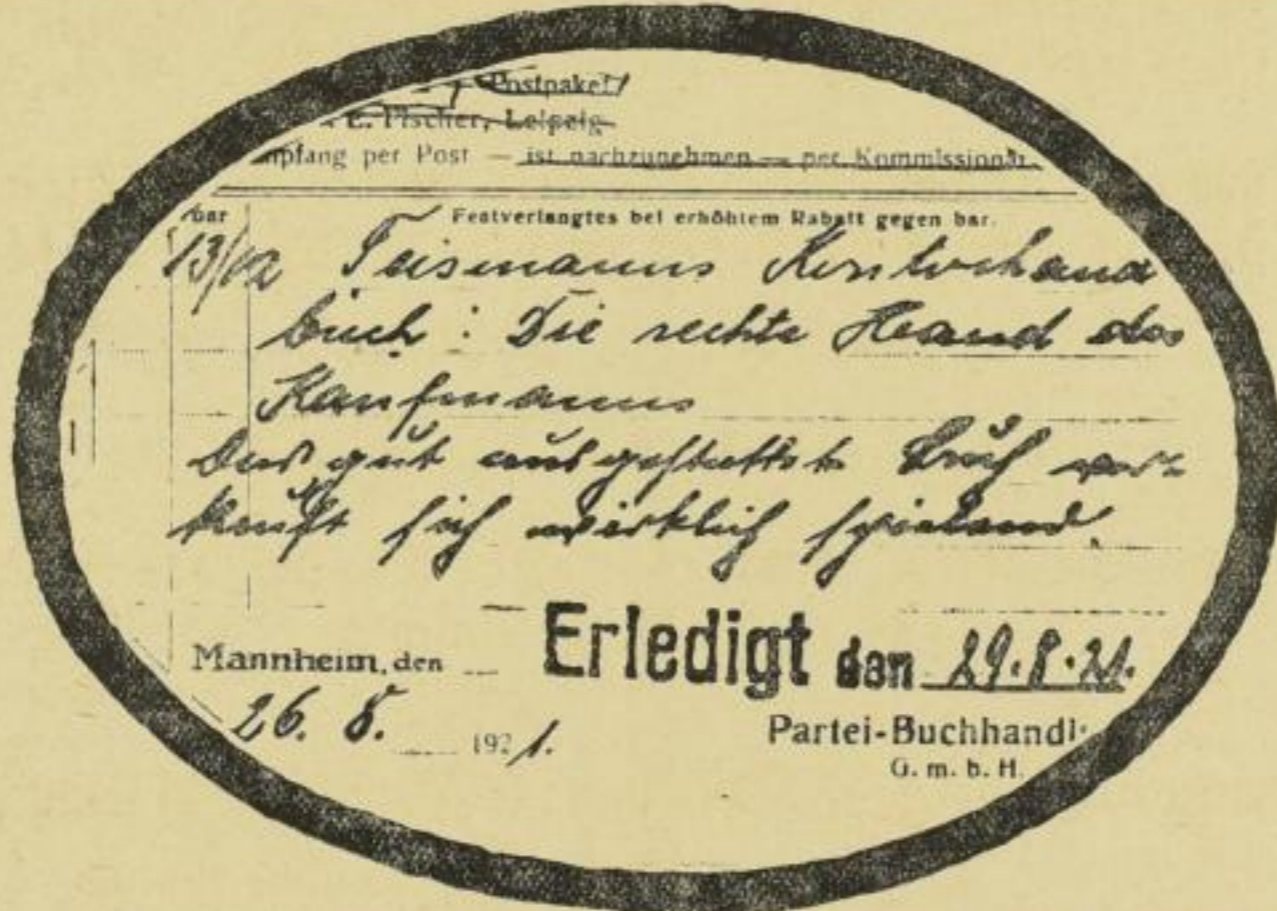 Postpaket
E. Fischer, Leipzig
mpfang per Post — ist nachzunehmen — per Kommissionär.
bar Festverlangtes bei erhöhtem Rabatt gegen bar.
13/12 Teismanns Kontorhand
buch: Die rechte Hand des
Kaufmanns
Das gut ausgestattete Buch ver-
kauft sich wirklich spielend.
Mannheim, den Erledigt den 29.8.21.
26. 8. 1921.
Partei-Buchhandl
G. m. b. H.